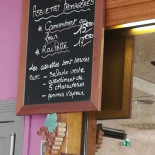 ASSIETTES FROMAGÈRES
* Camembert au
four 15€90
* Raclette 17€90
Les assiettes sont servies
avec : - Salade verte
- assortiment de
3 charcuteries
- pomme vapeur